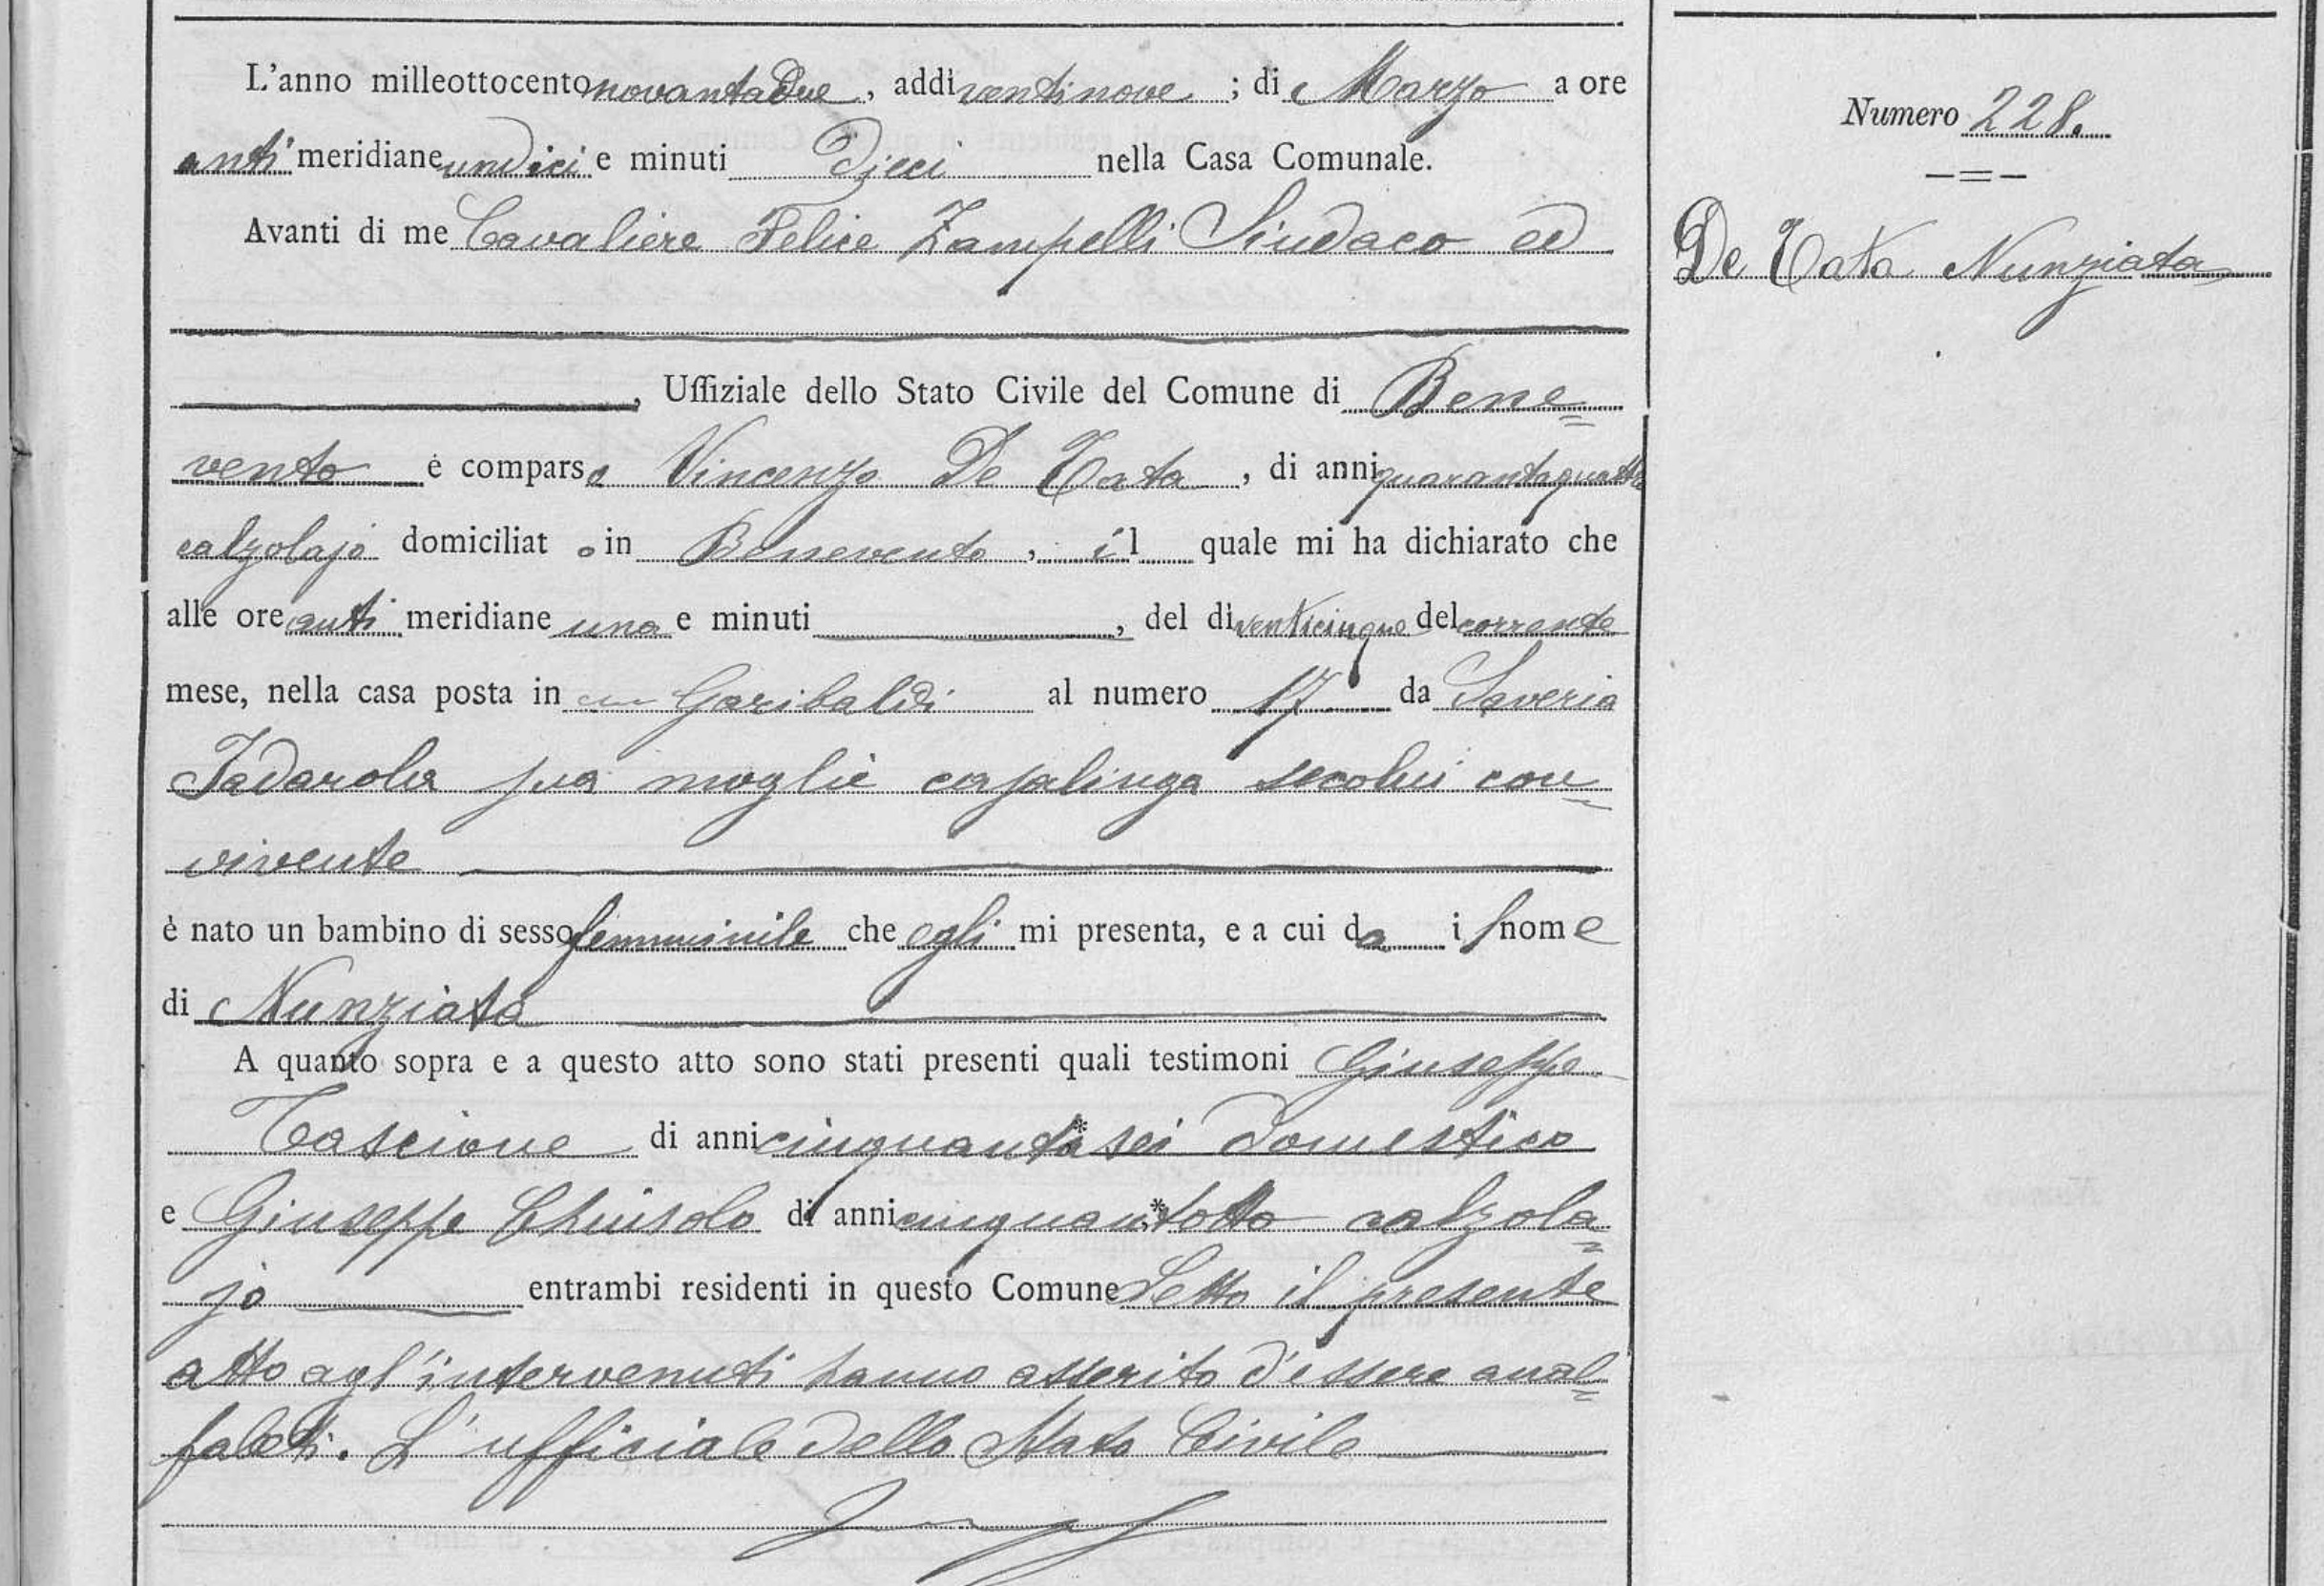 L'anno milleottocentonovantadue, addì ventinove ; di Marzo a ore
anti meridiane undici e minuti Dieci nella Casa Comunale.
Avanti di me Cavaliere Felice Zampelli Sindaco ed
, Uffiziale dello Stato Civile del Comune di Bene=
vento è comparso Vincenzo De Tata, di anni quarantaquattro
calzolajo domiciliato in Benevento, il quale mi ha dichiarato che
alle ore anti meridiane una e minuti , del dì venticinque del corrente
mese, nella casa posta in Garibaldi al numero 17 da Saveria
Iadarola sua moglie casalinga secolui con=
vivente
è nato un bambino di sesso femminile che egli mi presenta, e a cui da il nome
di Nunziata
A quanto sopra e a questo atto sono stati presenti quali testimoni Giuseppe
Cascione di anni cinquantasei domestico
e Giuseppe di anni cinquantotto calzola=
jo entrambi residenti in questo Comune Letto il presente
atto agl'intervenuti hanno asserito d'essere anal=
fabeti. L'ufficiale dello Stato Civile
Numero 228.
De Tata Nunziata